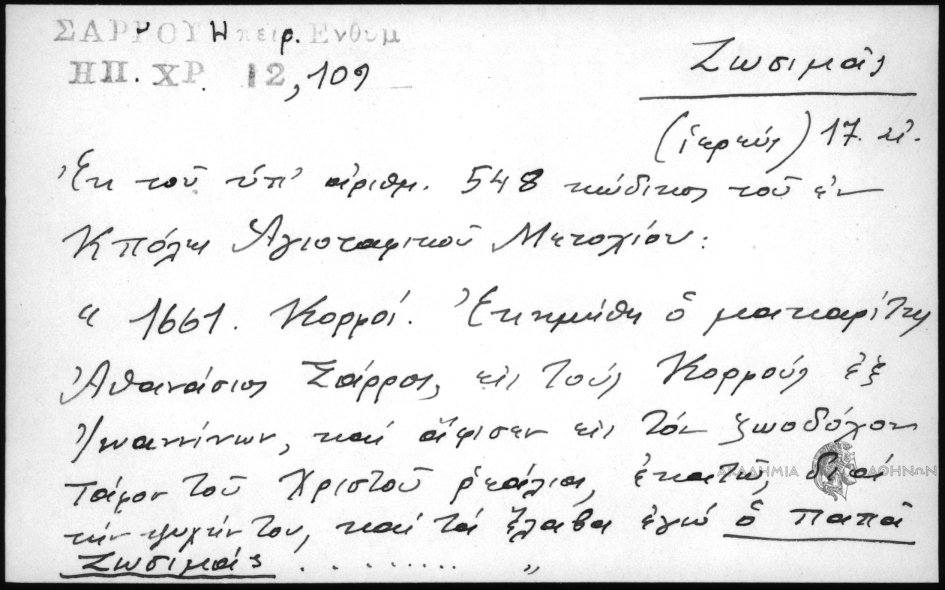 ΣΑΡΡΟΥ Ηπειρ. Ενθυμ
ΗΠ. ΧΡ 12, 109
Ζωσιμᾶς
(ἱερεύς) 17. αἰ.
Ἐκ τοῦ ὑπ' ἀριθμ. 548 κώδικος τοῦ ἐν
Κπόλει Ἁγιοταφικοῦ Μετοχίου:
" 1661. Κορμοί. Ἐκημήθη ὁ μακαρίτης
Ἀθανάσιος Σιάρρος, εἰς τοὺς Κορμοὺς ἐξ
Ἰωαννίνων, καὶ ἄφισεν εἰς τὸν ζωοδόχον
τάφον τοῦ Χριστοῦ ῥεάλια, ἑκατὸ, διὰ
ΑΚΑΔΗΜΙΑ ΑΘΗΝΩΝ
τὴν ψυχήν του, καὶ τὰ ἔλαβα ἐγὼ ὁ παπᾶ
Ζωσιμᾶς . . . . . . . . . "